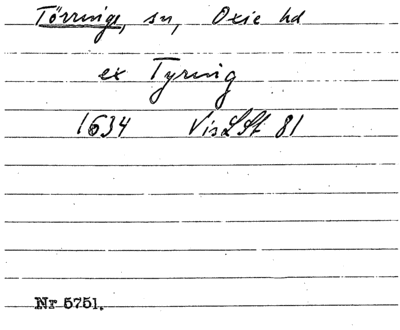 Törringe, sn, Oxie hd
ex Tyring
1634 VisLSt 81
Nr 5751.